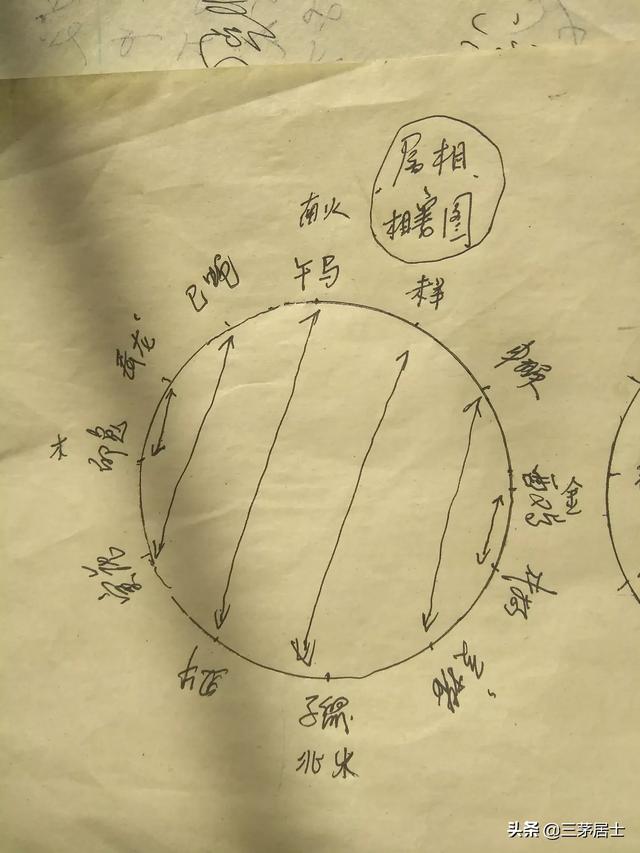 属相
相害图
南火
午马
巳蛇
未羊
辰龙
申猴
木
卯兔
酉鸡
金
寅虎
戌狗
丑牛
亥猪
子鼠
北水
头条 @三茅居士